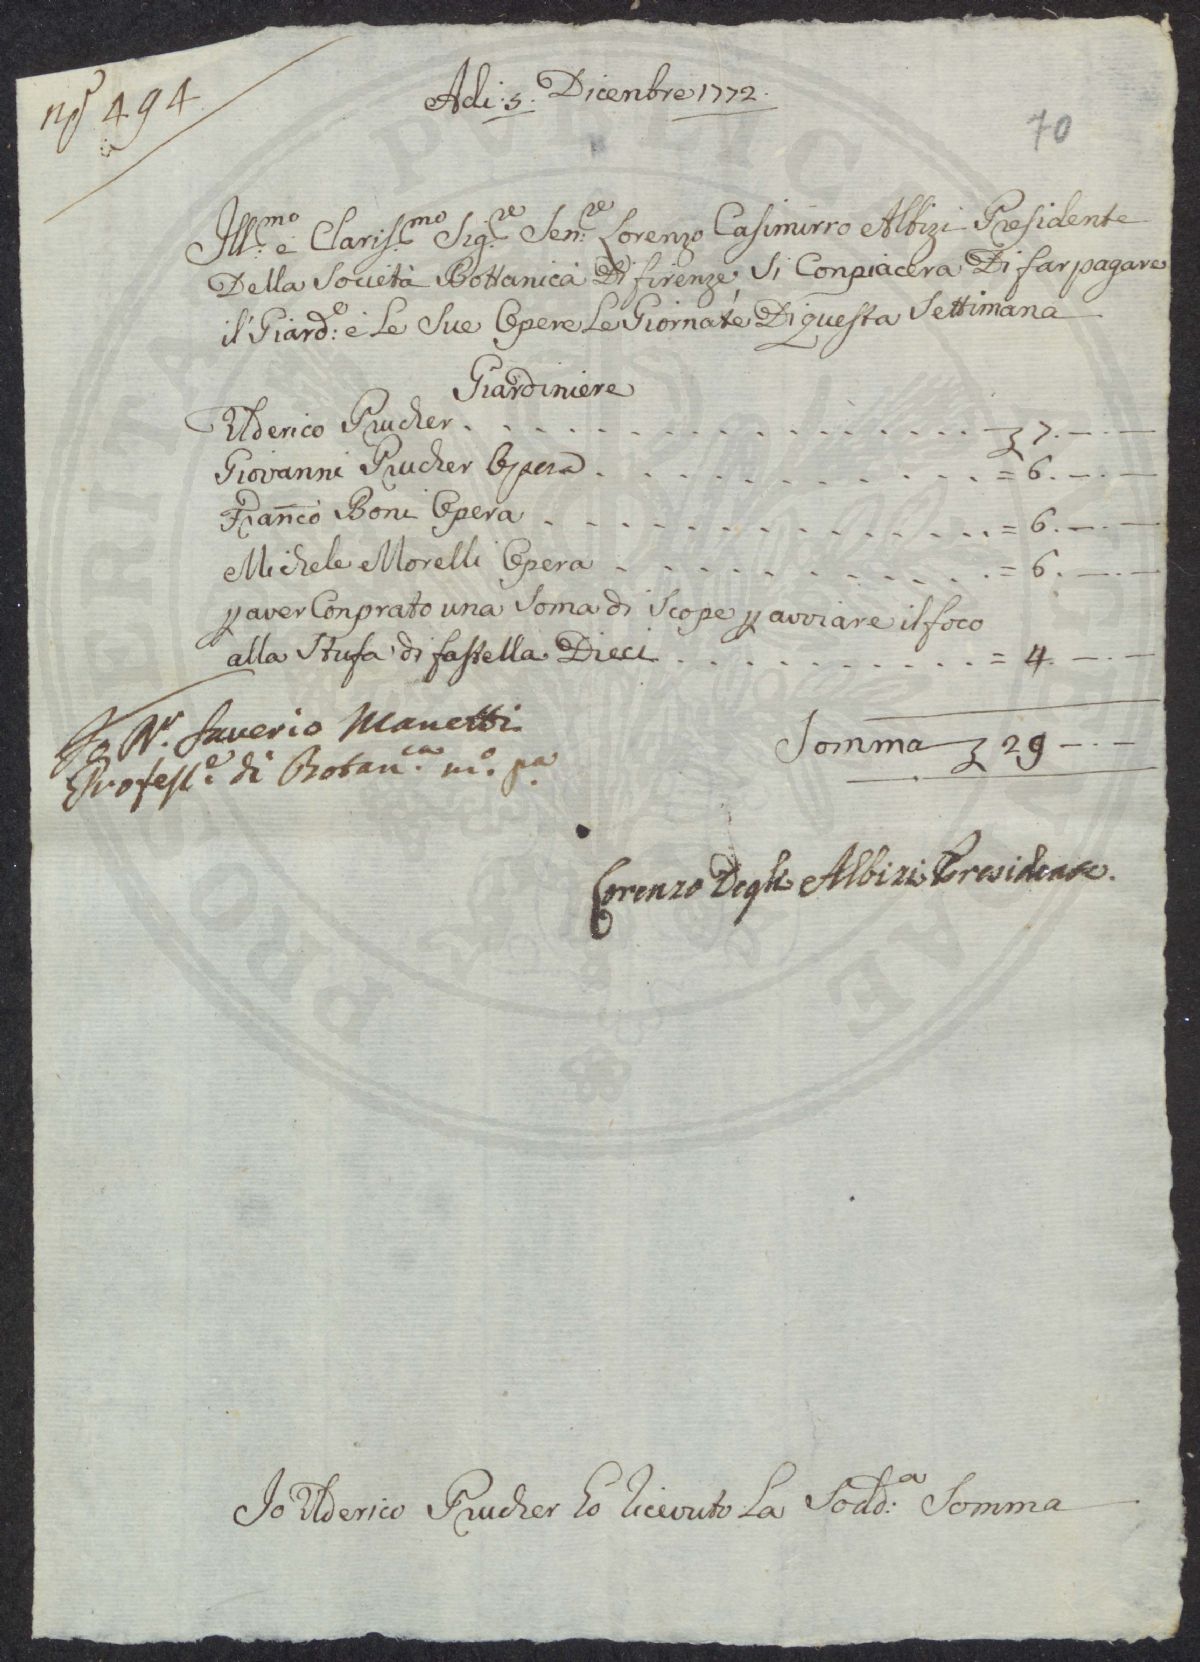 nº 494
Adi: 5. Dicenbre 1772.
70
Ill.mo e Claris.mo Sig.re Sen.re Lorenzo Casimirro Albizi Presidente
Della Società Bottanica Di firenze, Si Conpiacera Di far pagare
il Giard.o: e Le Sue Opere Le Giornate Di questa Settimana
Giardiniere
Ulderico Prucher . . . . . . . . . . . . . . . . . 7. — . —
Giovanni Prucher Opera . . . . . . . . . . . . = 6. — . —
Franco Boni Opera . . . . . . . . . . . . . . = 6. — . —
Michele Morelli Opera . . . . . . . . . . . . = 6. — . —
p aver Conprato una Soma di Scope p avviare il foco
alla Stufa di fastella Dieci . . . . . . . . . . = 4. — . —
Io Dr. Saverio Manetti
Profess.e di Botan.ca m.o p.a
Somma 29 — . —
Lorenzo Degli Albizi Presidente.
Io Ulderico Prucher ho ricevuto La Sodd:a Somma